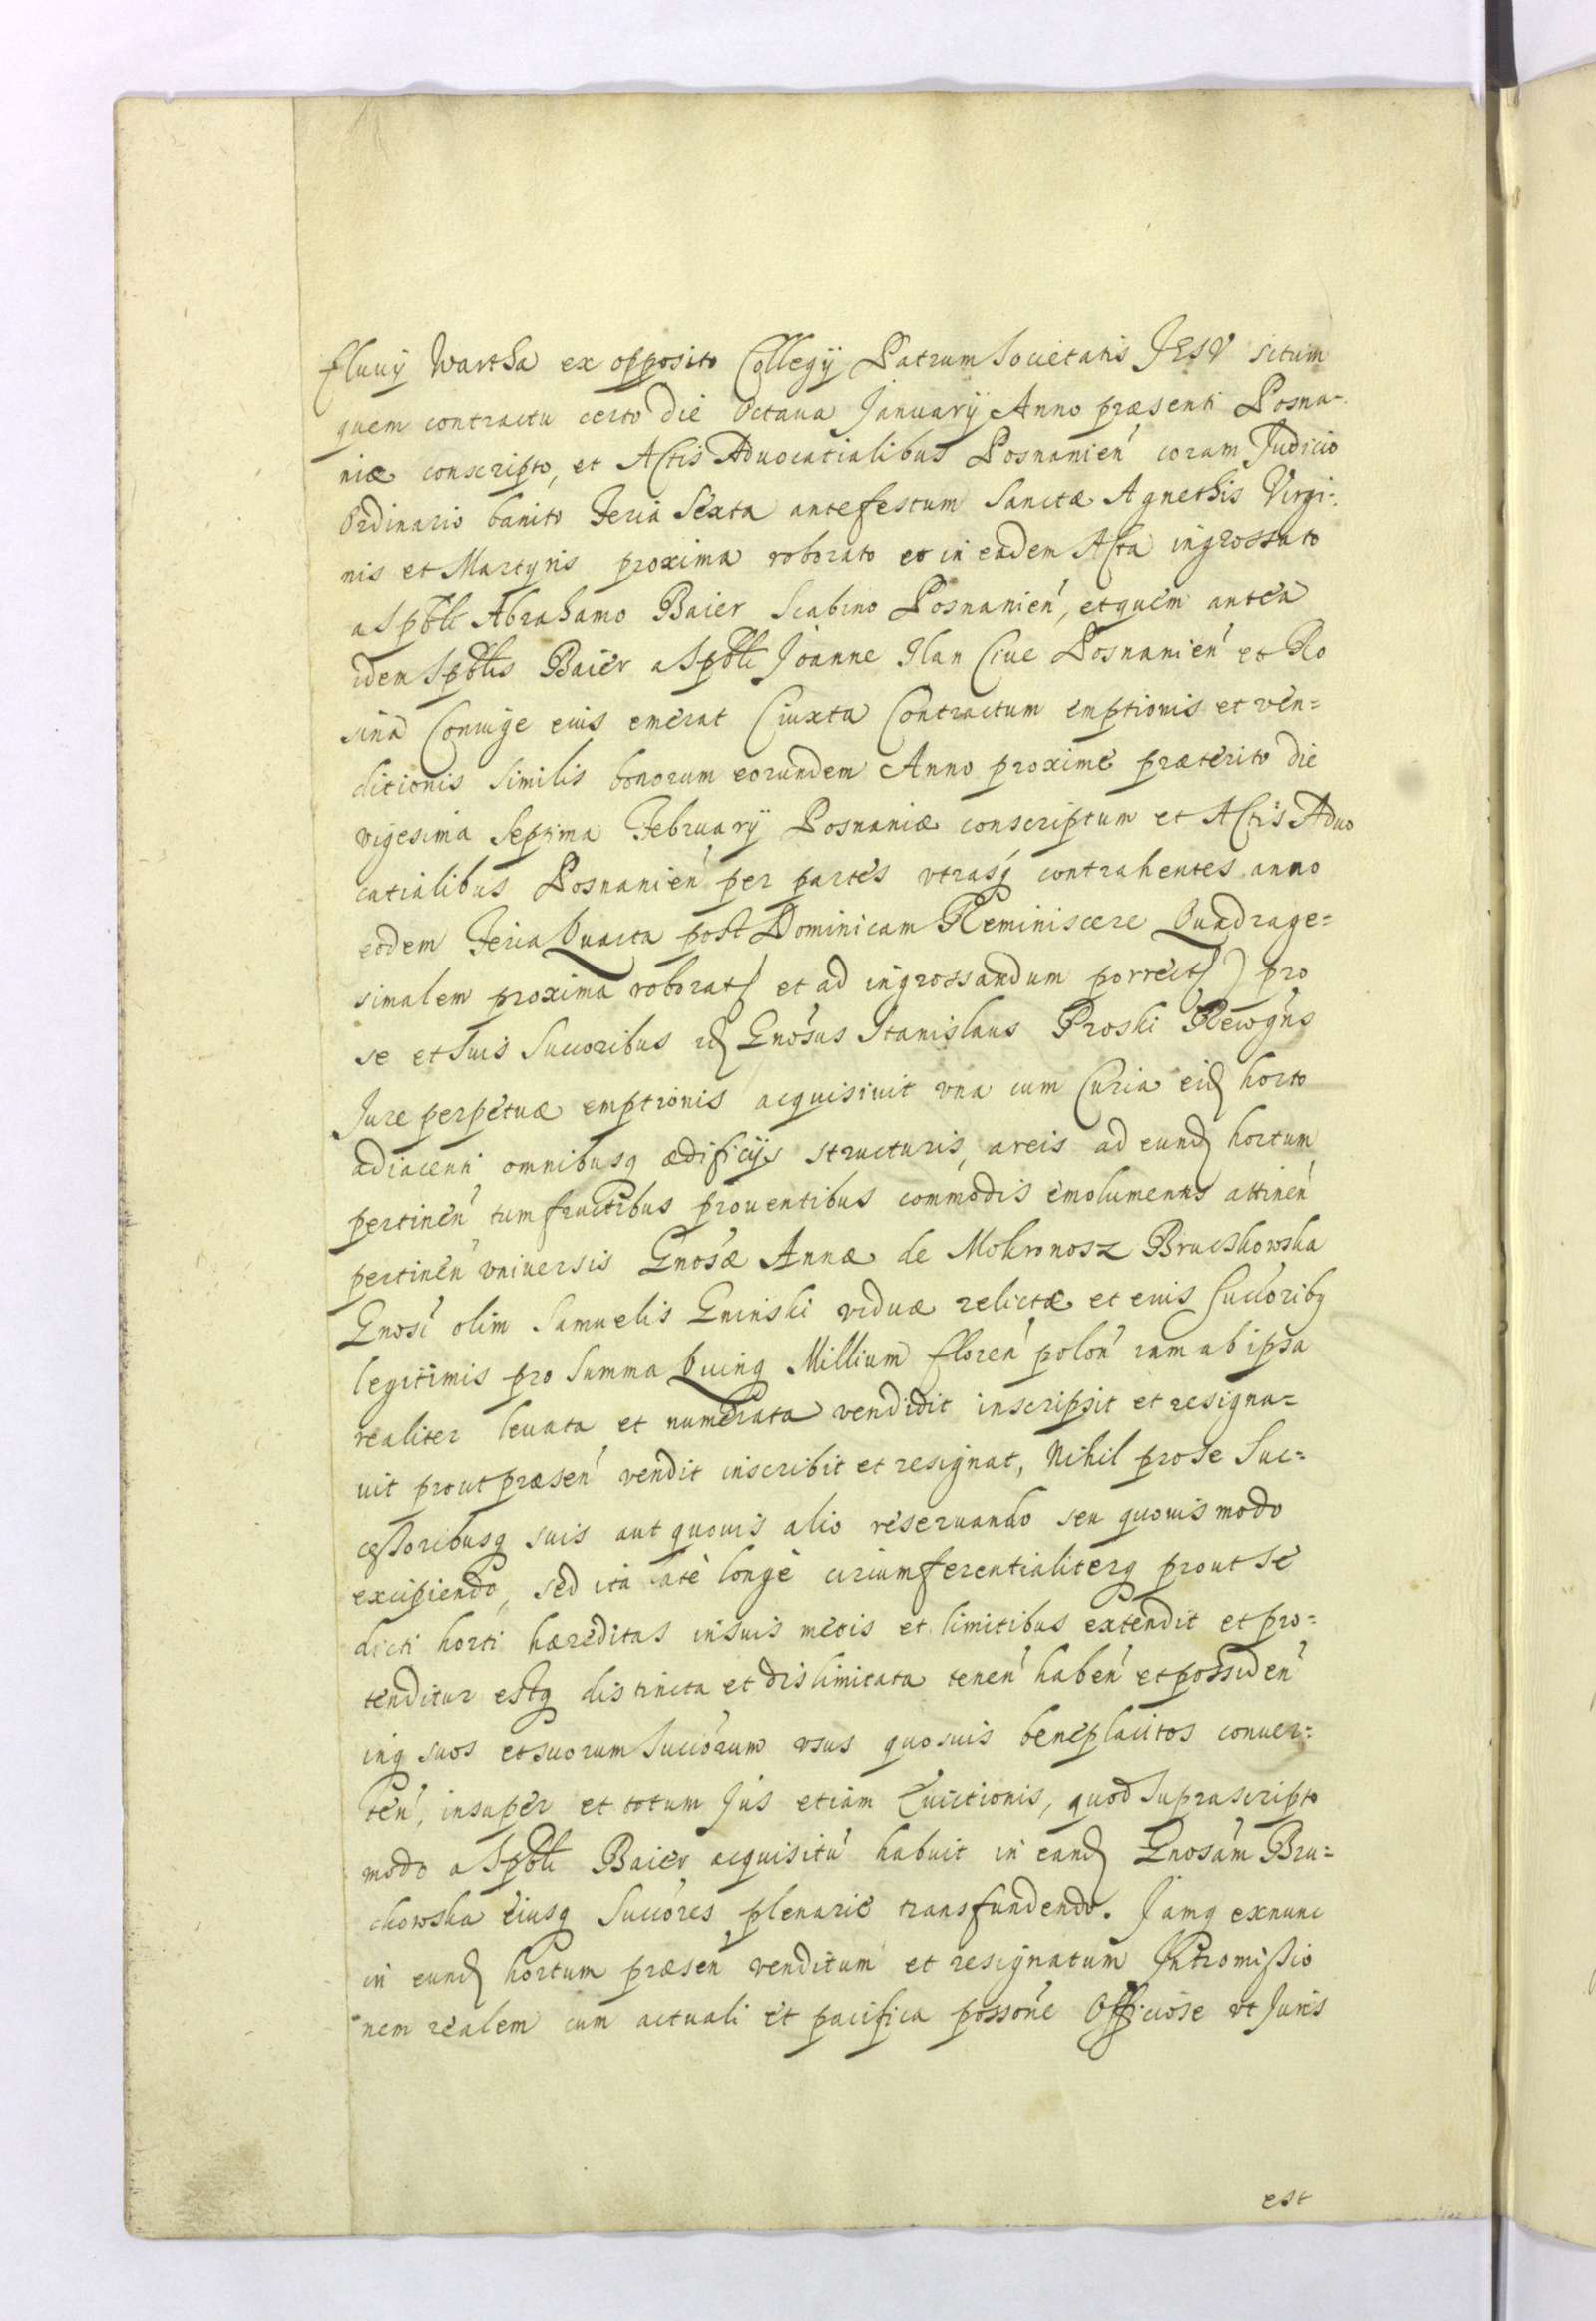 fluuij Wartha ex opposito Collegij Patrum Societatis JESV situm
quem contractu certo die Octaua Januarij Anno præsenti Posna-
niæ conscripto, et Actis Aduocatialibus Posnanien̄ coram Judicio
Ordinario banito Feria Sexta ante festum Sanctæ Agnethis Virgi:
nis et Martyris proxima roborato et in eadem Acta ingrossato
a Spbli Abrahamo Baier Scabino Posnanien̄, et quem antea
idem Spblis Baier a Spbli Joanne Ilan Ciue Posnanien̄ et Ro
sina Coniuge eius emerat (iuxta Contractum emptionis et ven=
ditionis similis bonorum eorundem Anno proxime præterito die
vigesima Septima Februarij Posnaniæ conscriptum et Actis Aduo
catialibus Posnanien̄ per partes vtrasq contrahentes anno
eodem Feria Quarta post Dominicam Reminiscere Quadrage=
simalem proxima roborat et ad ingrossandum porrect) pro
se et suis Succoribus Gnosus Stanislaus Proski Recogns
Jure perpetuæ emptionis acquisiuit vna cum Curia eid horto
adiacenti omnibusq ædificijs structuris, areis ad eund hortum
pertinen̄ tum fructibus prouentibus commodis emolumentis attinen̄
pertinen̄ vniuersis Gnosæ Annæ de Mokronosz Bruczkowska
Gnosi olim Samuelis Gninski viduæ relictæ et eius Succoribq
legitimis pro Summa Quinq Millium floren̄ polon̄ iam ab ipsa
realiter leuata et numerata vendidit inscripsit et resigna=
uit prout præsen̄ vendit inscribit et resignat, Nihil pro se Suc=
cessoribusq suis aut quouis alio reseruando seu quouis modo
excipiendo, sed ita late longe circumferentialiterq prout se
dicti horti hæreditas in suis metis et limitibus extendit et pro=
tenditur estq distincta et dislimitata tenen̄ haben̄ et possiden̄
inq suos et suorum Succorum vsus quosuis beneplacitos conuer=
ten̄, insuper et totum Jus etiam Euictionis, quod suprascripto
modo a Spbli Baier acquisitū habuit in eand Gnosam Bru=
ckowska eiusq Succores plenarie transfundendo. Jamq exnunc
in eund hortum præsen̄ venditum et resignatum Intromissio
nem realem cum actuali et pacifica possone Officiose vt Juris
est